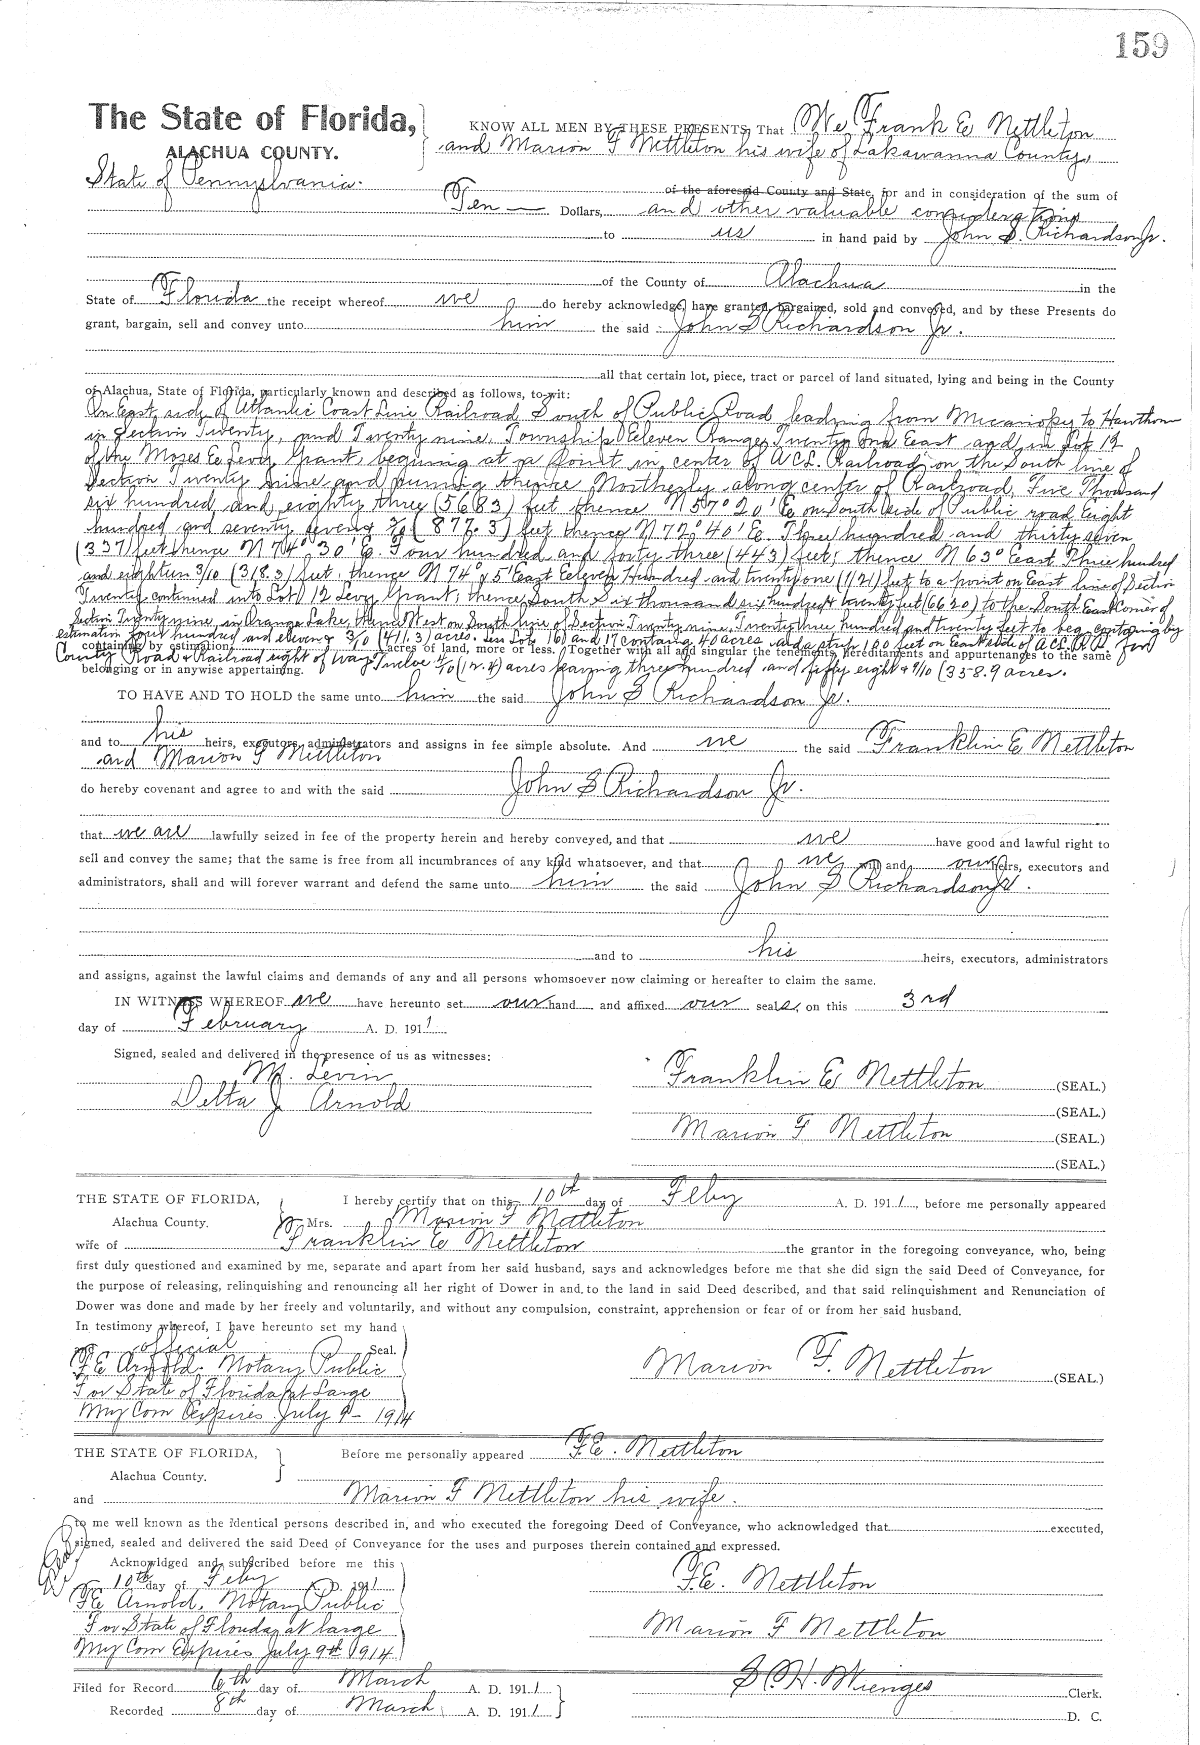 159
The State of Florida, KNOW ALL MEN BY THESE PRESENTS, That We Frank E Nettleton
ALACHUA COUNTY. and Marion F Nettleton his wife of Lakawanna County,
State of Pennsylvania. of the aforesaid County and State, for and in consideration of the sum of
Ten — Dollars, and other valuable considerations
to us in hand paid by John S. Richardson Jr.
of the County of Alachua in the
State of Florida the receipt whereof we do hereby acknowledge, have granted, bargained, sold and conveyed, and by these Presents do
grant, bargain, sell and convey unto him the said John S Richardson Jr.
all that certain lot, piece, tract or parcel of land situated, lying and being in the County
of Alachua, State of Florida, particularly known and described as follows, to-wit:
On East side of Atlantic Coast Line Railroad South of Public Road leading from Micanopy to Hawthorn
in Section Twenty, and Twenty nine, Township Eeleven Range Twenty and East and in Lot 12
of the Moses E Levy Grant, begining at a point in center of A.C.L. Railroad on the South line of
Section Twenty nine and running thence Northerly along center of Railroad, Five Thousand
six hundred and eighty three (5683) feet thence N 57° 20' E on South side of Public road Eight
hundred and seventy seven & 3/10 (877.3) feet thence N 72° 40' E. Three hundred and thirty seven
(337) feet thence N 74° 30' E. Four hundred and forty three (443) feet; thence N 63° East Three hundred
and eighteen 3/10 (318.3) feet, thence N 74° 5' East Eeleven Hundred and twenty one (1121) feet to a point on East line of Section
Twenty continued into Lot 12 Levy Grant; thence South Six thousand six hundred & twenty feet (6620) to the South East Corner of
Section Twenty nine, in Orange Lake, thence West on South line of Section Twenty nine, Twenty three hundred and twenty feet to beg. containg by
estimation four hundred and eleven & 3/10 (411.3) acres. Less Lots 16 and 17 containg 40 acres and a strip 100 feet on East side of A.C.L. R.R. for
containing by estimation, acres of land, more or less. Together with all and singular the tenements, hereditaments and appurtenances to the same
County Road & Railroad right of way Twelve 4/10 (12.4) acres leaving three hundred and fifty eight & 9/10 (358.9 acres.
belonging or in anywise appertaining.
TO HAVE AND TO HOLD the same unto him the said John S Richardson Jr.
and to his heirs, executors, administrators and assigns in fee simple absolute. And we the said Franklin E Nettleton
and Marion F Nettleton
do hereby covenant and agree to and with the said John S Richardson Jr.
that we are lawfully seized in fee of the property herein and hereby conveyed, and that we have good and lawful right to
sell and convey the same; that the same is free from all incumbrances of any kind whatsoever, and that we will and our heirs, executors and
administrators, shall and will forever warrant and defend the same unto him the said John S Richardson Jr.
and to his heirs, executors, administrators
and assigns, against the lawful claims and demands of any and all persons whomsoever now claiming or hereafter to claim the same.
IN WITNESS WHEREOF we have hereunto set our hand and affixed our seals, on this 3rd
day of February A. D. 1911
Signed, sealed and delivered in the presence of us as witnesses:
M. Levin
Delta J Arnold
Franklin E Nettleton (SEAL.)
(SEAL.)
Marion F Nettleton (SEAL.)
(SEAL.)
THE STATE OF FLORIDA, I hereby certify that on this 10th day of Feby A. D. 1911, before me personally appeared
Alachua County. Mrs. Marion F Nettleton
wife of Franklin E Nettleton the grantor in the foregoing conveyance, who, being
first duly questioned and examined by me, separate and apart from her said husband, says and acknowledges before me that she did sign the said Deed of Conveyance, for
the purpose of releasing, relinquishing and renouncing all her right of Dower in and to the land in said Deed described, and that said relinquishment and Renunciation of
Dower was done and made by her freely and voluntarily, and without any compulsion, constraint, apprehension or fear of or from her said husband.
In testimony whereof, I have hereunto set my hand
and official Seal.
F E Arnold. Notary Public
For State of Florida at Large
My Com Expires July 9 - 1914
Marion F. Nettleton (SEAL.)
THE STATE OF FLORIDA, Before me personally appeared F.E. Nettleton
Alachua County.
and Marion F Nettleton his wife.
to me well known as the identical persons described in, and who executed the foregoing Deed of Conveyance, who acknowledged that executed,
signed, sealed and delivered the said Deed of Conveyance for the uses and purposes therein contained and expressed.
Seal
Acknowldged and subscribed before me this
10th day of Feby A. D. 1911
F E Arnold, Notary Public
For State of Florida, at large
My Com Expires July 9th 1914
F.E. Nettleton
Marion F Nettleton
Filed for Record 6th day of March A. D. 1911
S. H. Wienges Clerk.
Recorded 8th day of March A. D. 1911
D. C.